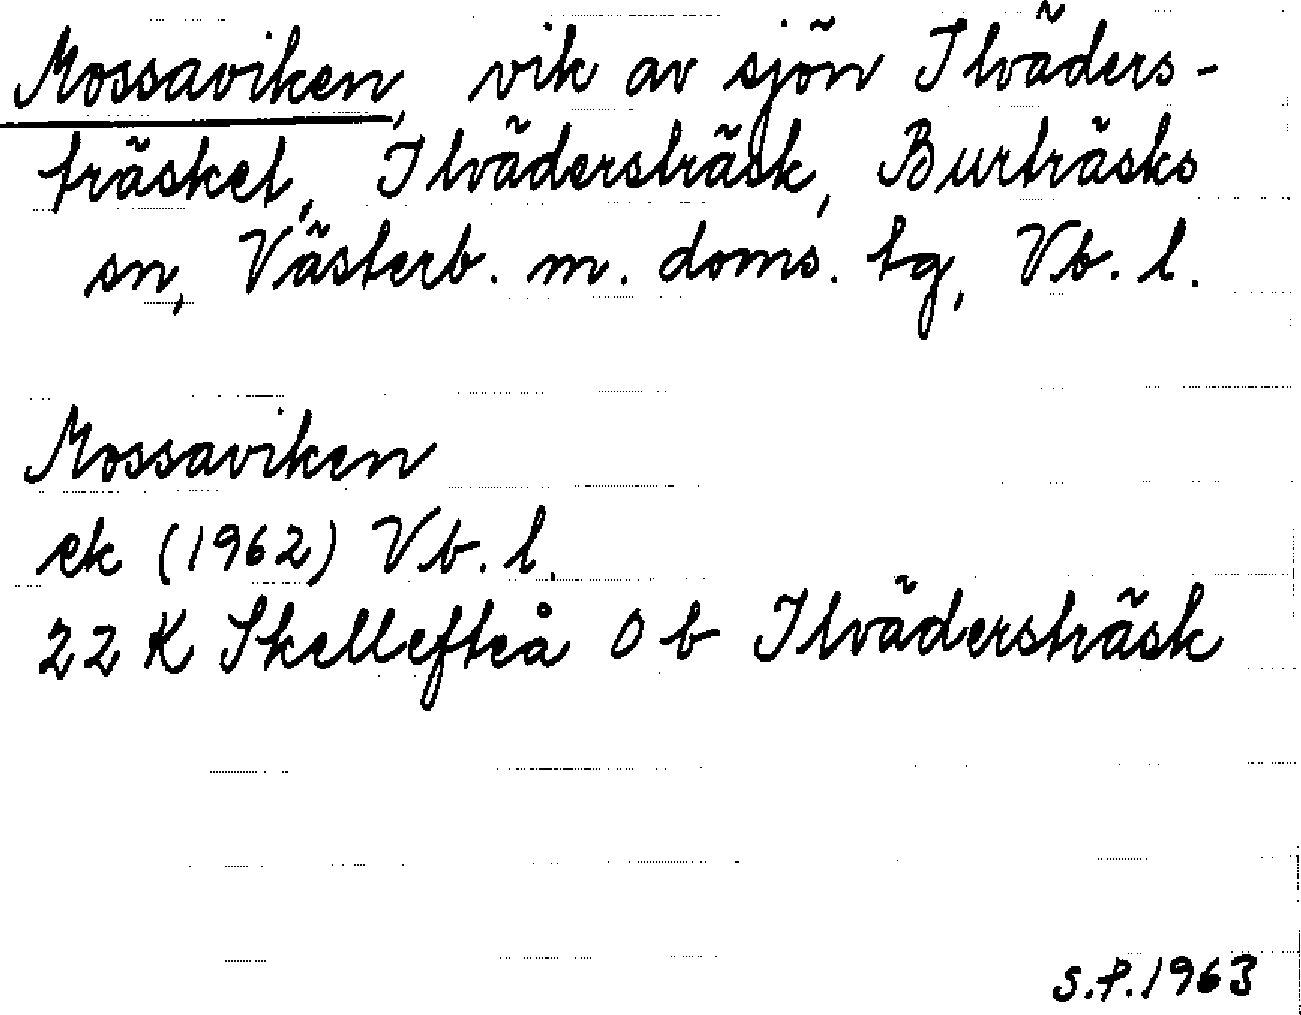 Mossaviken, vik av sjön Ilväders-
träsket, Ilvädersträsk, Burträsks
sn, Västerb. m. doms. tg, Vb. l.
Mossaviken
ek (1962) Vb. l.
22 K Skellefteå 0 b Ilvädersträsk
S.P. 1963